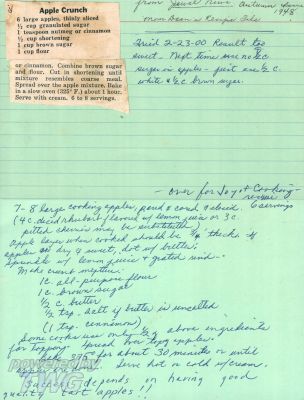 Apple Crunch
6 large apples, thinly sliced
½ cup granulated sugar
1 teaspoon nutmeg or cinnamon
½ cup shortening
1 cup brown sugar
1 cup flour
or cinnamon. Combine brown sugar
and flour. Cut in shortening until
mixture resembles coarse meal.
Spread over the apple mixture. Bake
in a slow oven (325° F.) about 1 hour.
Serve with cream. 6 to 8 servings.
from News Autumn
1948
Recipe File
Tried 2-23-00 Result too
sweet - Next time use no ½ c.
sugar on apples - just use ½ c.
white & ½ c. brown sugar.
over for Joy of Cooking
recipe
7-8 large cooking apples, pared & cored & sliced. 6 servings
(4 c. diced rhubarb leaved w/ lemon juice or 3 c.
pitted cherries may be substituted)
Apple layer when cooked should be ¾ thick if
apples are dry & sweet, dot w/ butter;
Sprinkle w/ lemon juice & grated rind.
Make crunch mixture:
1 c. all-purpose flour
1 c. brown sugar
½ c. butter
½ tsp. salt if butter is unsalted
(1 tsp. cinnamon)
Some cooks use only ½ of above ingredients
for topping. Spread over top of apples.
Bake 375° for about 30 minutes or until
apples are Serve hot or cold w/ cream.
Success depends on having good
quality tart apples!!